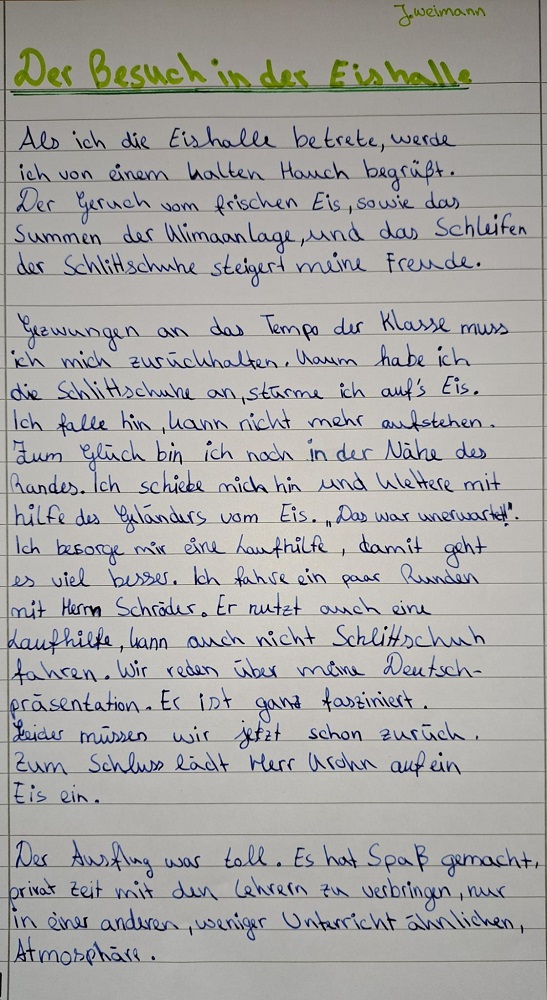 J.weimann
Der Besuch in der Eishalle
Als ich die Eishalle betrete, werde
ich von einem kalten Hauch begrüßt.
Der Geruch vom frischen Eis, sowie das
Summen der Klimaanlage, und das Schleifen
der Schlittschuhe steigert meine Freude.
Gezwungen an das Tempo der Klasse muss
ich mich zurückhalten. Kaum habe ich
die Schlittschuhe an, stürme ich auf's Eis.
Ich falle hin, kann nicht mehr aufstehen.
Zum Glück bin ich noch in der Nähe des
Randes. Ich schiebe mich hin und klettere mit
hilfe des Geländers vom Eis. „Das war unerwartet!".
Ich besorge mir eine Laufhilfe, damit geht
es viel besser. Ich fahre ein paar Runden
mit Herrn Schröder. Er nutzt auch eine
Laufhilfe, kann auch nicht Schlittschuh
fahren. Wir reden über meine Deutsch-
präsentation. Er ist ganz fasziniert.
Leider müssen wir jetzt schon zurück.
Zum Schluss lädt Herr Krohn auf ein
Eis ein.
Der Ausflug war toll. Es hat Spaß gemacht,
privat Zeit mit den Lehrern zu verbringen, nur
in einer anderen, weniger Unterricht ähnlichen,
Atmosphäre.